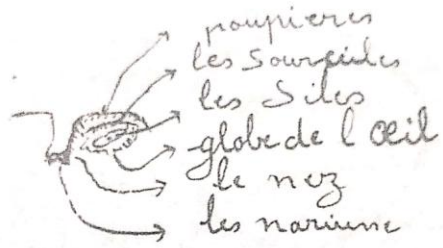 poupieres
les Sourciles
les Siles
globe de l œil
le nez
les nariune